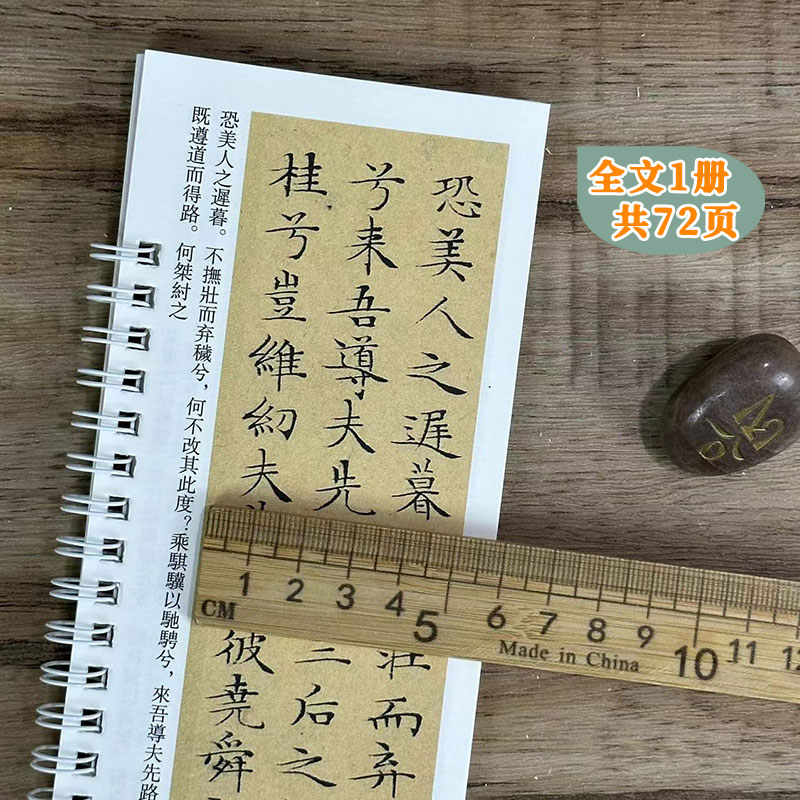 全文1册
共72页
恐美人之遲暮
而弃
兮来吾導夫先
三后之
桂兮豈維紉夫
彼堯舜
恐美人之遲暮。不撫壯而弃穢兮，何不改其此度？乘騏驥以馳騁兮，來吾導夫先路
既遵道而得路。何桀紂之
1 2 3 4 5 6 7 8 9 10 11 12
CM
Made in China